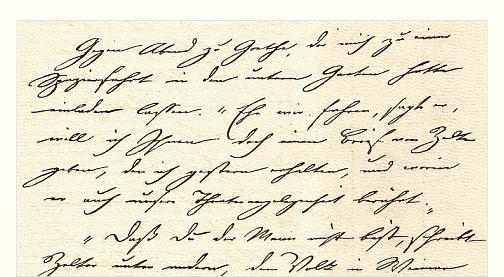 Gegen Abend zu Goethe, der mich zu einer
Spazierfahrt in den untern Garten hatte
einladen lassen. „Ehe wir fahren, sagte er,
will ich Ihnen doch einen Brief von Zelter
geben, den ich gestern erhalten, und worin
er auch unsere Theaterangelegenheit berührt.
„Daß du der Mann nicht bist, schreibt
Zelter unter andern, dem Volk in Weimar